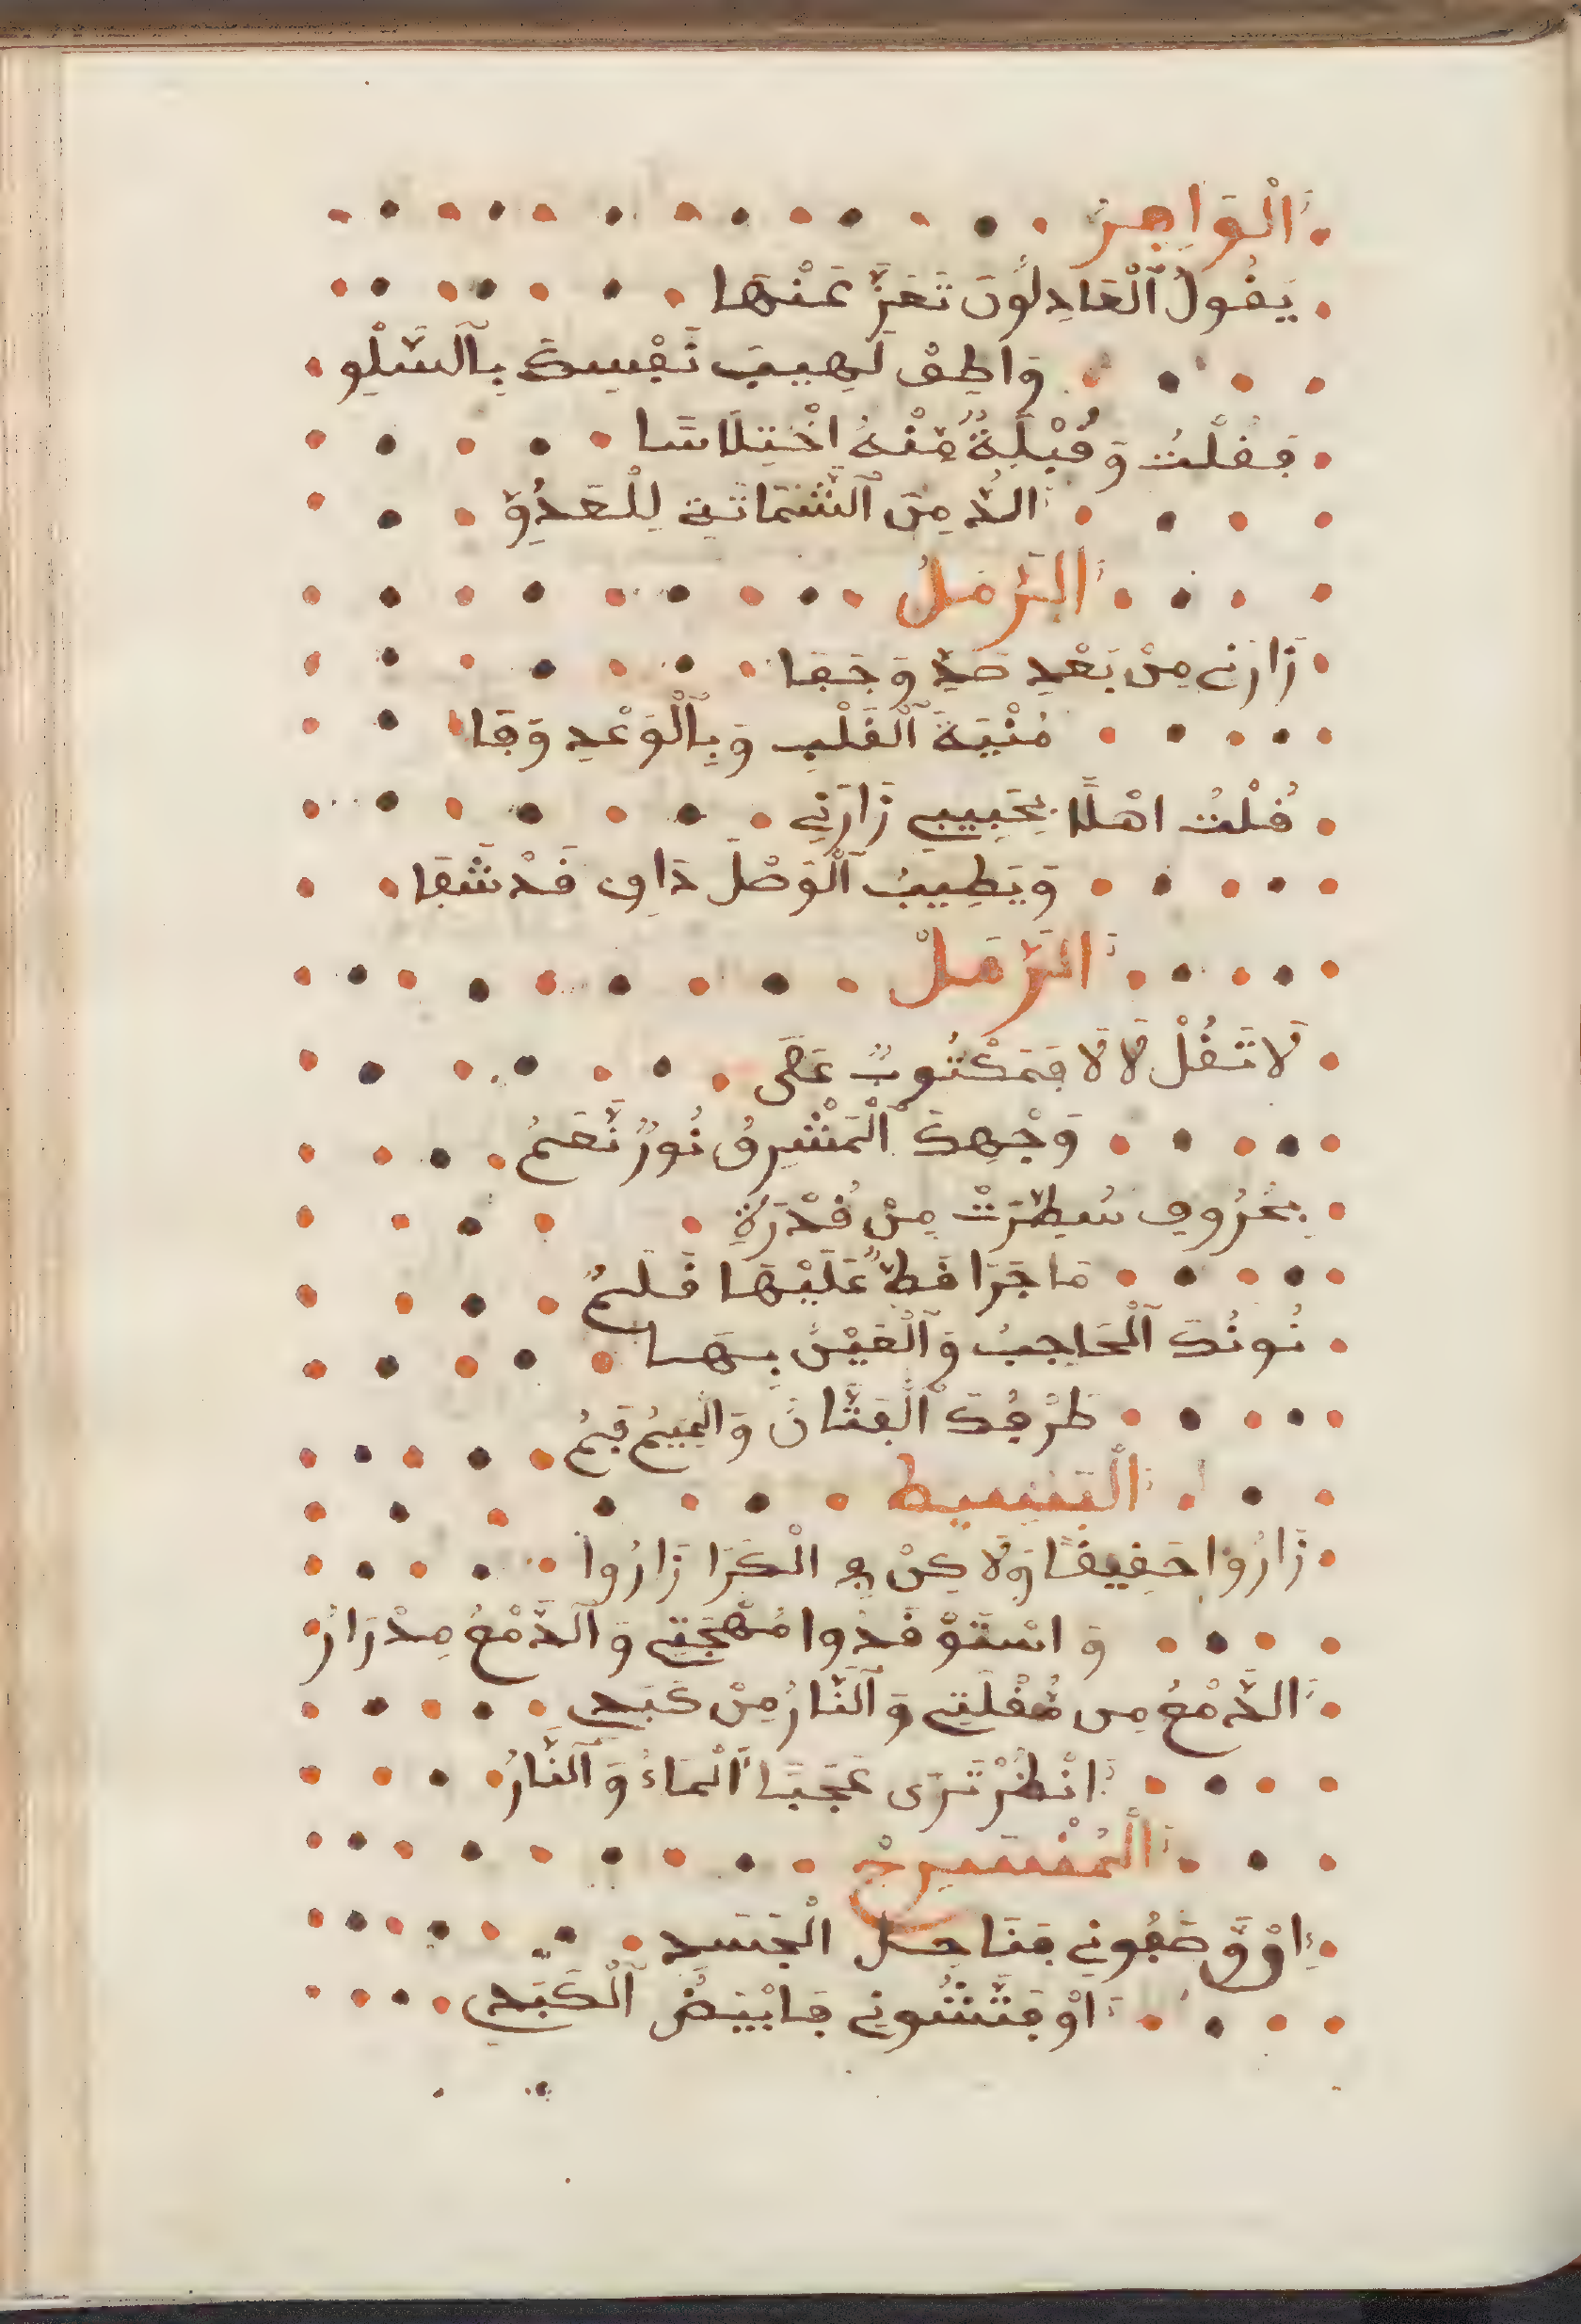 اَلْوَافِرْ
يَقُولُ اَلْعَاذِلُونَ تَعَزَّ عَنْهَا
وَاطِفْ لَهِيبَ نَفْسِكَ بِالسَّلْوِ
فَقُلْتُ وَقُبْلَةٌ مِّنْهُ اخْتِلَاسًا
اَلذُّ مِنَ الشَّمَاتَةِ لِلْعَدُوِّ
اَلرَّمَلُ
زَارَنِي مِنْ بَعْدِ صَدٍّ وَجَفَا
مُنْيَةَ الْقَلْبِ وَبِالْوَعْدِ وَفَا
قُلْتُ اهْلًا بِحَبِيبٍ زَارَنِي
وَبِطِيبُ الْوَصْلَ دَاءِ قَدْ شَفَا
اَلرَّمَلْ
لَا تَقُلْ لَا لَا فَمَكْتُوبٌ عَلَى
وَجْهِكَ الْمَشْرِقُ نُورٌ نَّعَمُ
بِحُرُوفٍ سُطِّرَتْ مِنْ قُدْرَةٍ
مَا جَرَا قَطٌّ عَلَيْهَا قَلَمٌ
نُونُكَ الْحَاجِبُ وَالْعَيْنُ بِهَا
طَرْفُكَ الْفَتَّانُ وَالْمِيمُ فَمُ
اَلْبَسِيط
زَارُوا حَقِيقًا وَلَاكِنْ فِي الْكَرَا زَارُوا
وَاسْتَوْقَدُوا مُهْجَتِي وَالدَّمْعُ مِدْرَارُ
اَلدَّمْعُ مِن مُّقْلَتِي وَالنَّارُ مِنْ كَبَدِي
اَنْظُرْ تَرَى عَجَبًا اَلْمَاءُ وَالنَّارُ
اَلْمُنْسَرِحْ
اِوْقَّ ضَفُونِي فَنَاحِلُ الْجَسَدِ
اَوْ فَتَّشُونِي فَابْيَضُ الْكَبَدِ